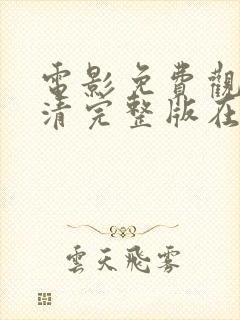 電影免費觀
清完整版在
雲天飛霧